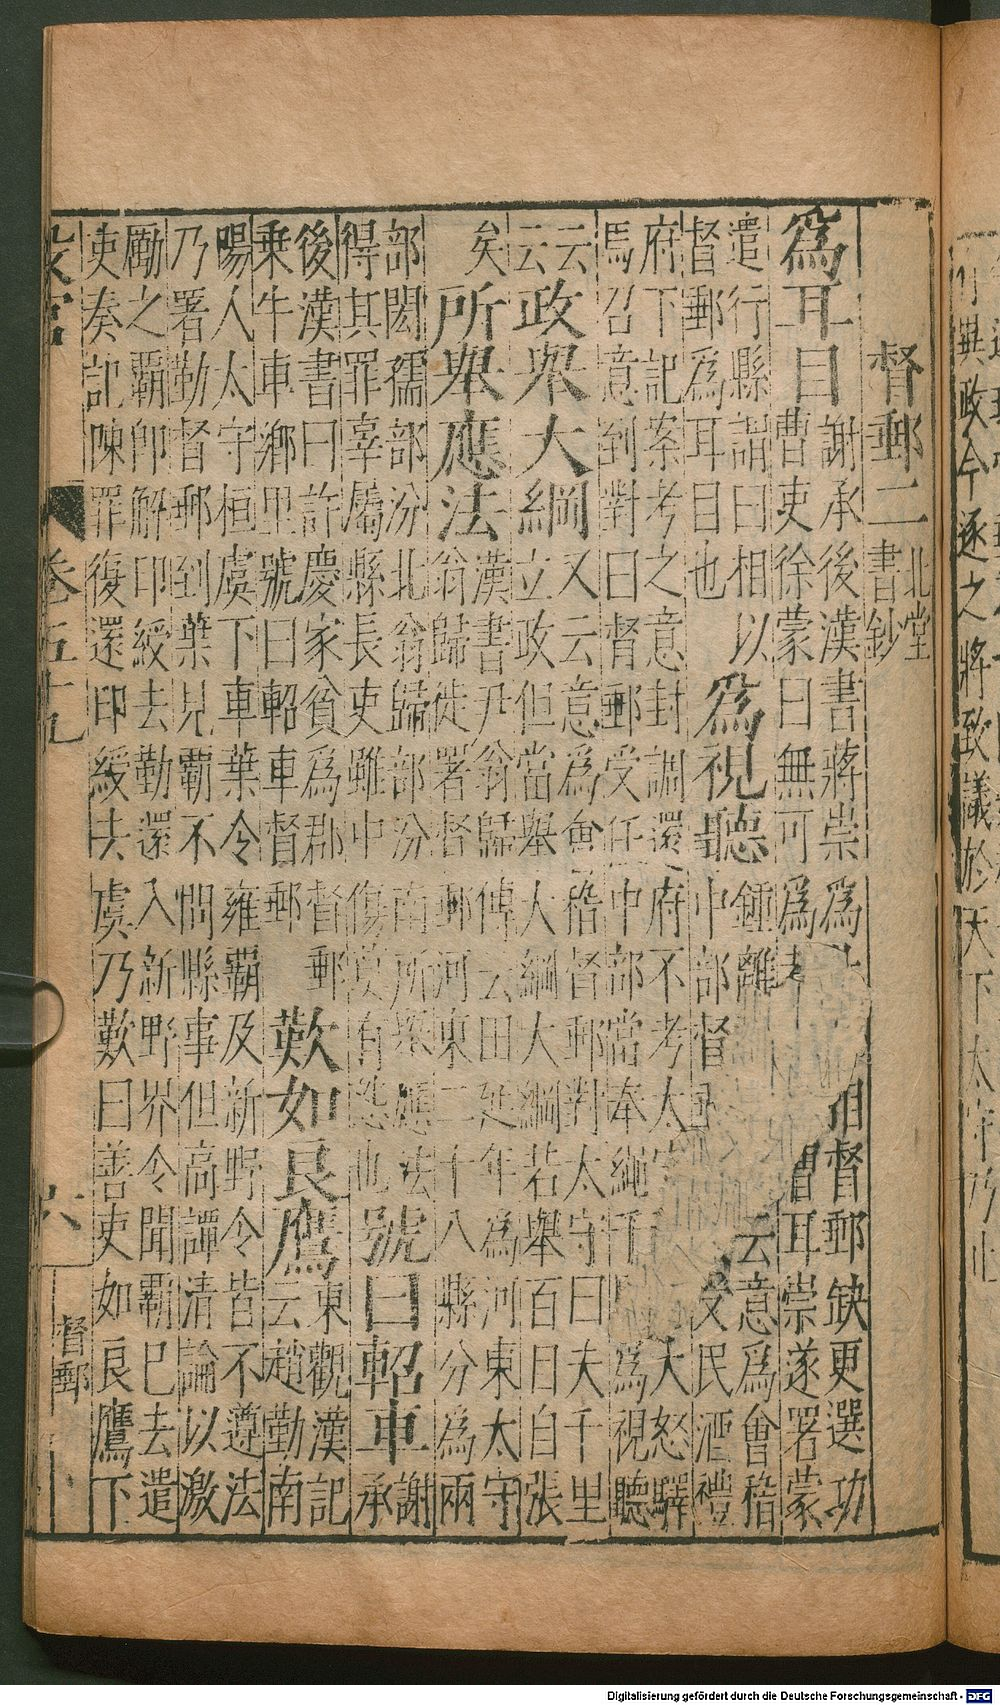 督郵二 北堂
書鈔
爲耳目 謝承後漢書蔣崇爲 督郵缺更選功
曹吏徐蒙曰無可爲 耳崇遂署蒙
遣行縣謂曰相以 爲視聽 鍾離 云意爲會稽
督郵爲耳目也 中部督 民酒禮
府下記案考之意封調還府不考太 大怒驛
馬召意到對曰督郵受任中部當奉繩千 爲視聽
云云 政舉大綱 又云意爲會稽督郵對太守曰夫千里
立政但當舉大綱大綱若舉百目自張
矣 所舉應法 漢書尹翁歸傳云田延年爲河東太守
翁歸徙署督郵河東二十八縣分爲兩
部閎孺部汾北翁歸部汾南所舉應法 號曰軺車 謝
得其罪辜屬縣長吏雖中傷莫有怨也 承
後漢書曰許慶家貧爲郡督郵 歎如良鷹 東觀漢記
乘牛車鄉里號曰軺車督郵 云趙勤南
陽人太守桓虞下車葉令雍霸及新野令皆不遵法
乃署勤督郵到葉見霸不問縣事但高譚清論以激
勵之霸即解印綬去勤還入新野界令聞霸已去遣
吏奏記陳罪復還印綬去虞乃歎曰善吏如良鷹下
卷五十九
六
督郵
異政今逐之將致議於天下太守乃止
Digitalisierung gefördert durch die Deutsche Forschungsgemeinschaft - DFG